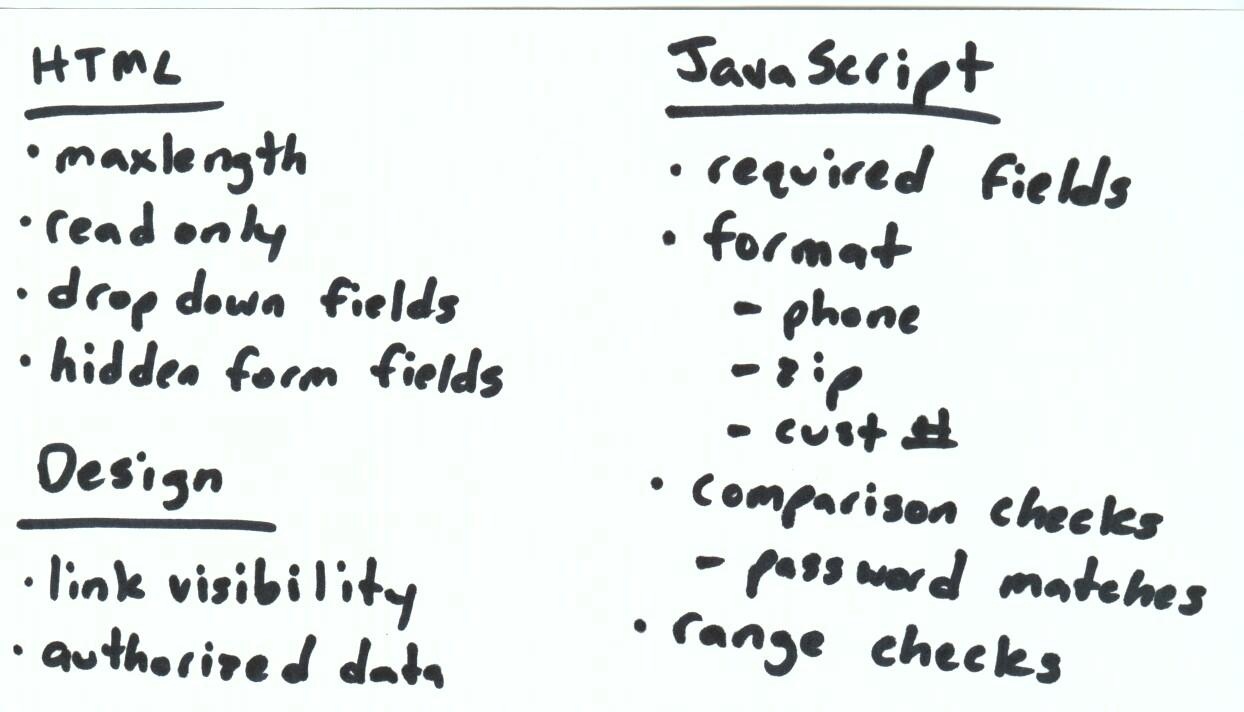 HTML
• maxlength
• read only
• drop down fields
• hidden form fields
Design
• link visibility
• authorized data
JavaScript
• required fields
• format
- phone
- zip
- cust #
• comparison checks
- password matches
• range checks